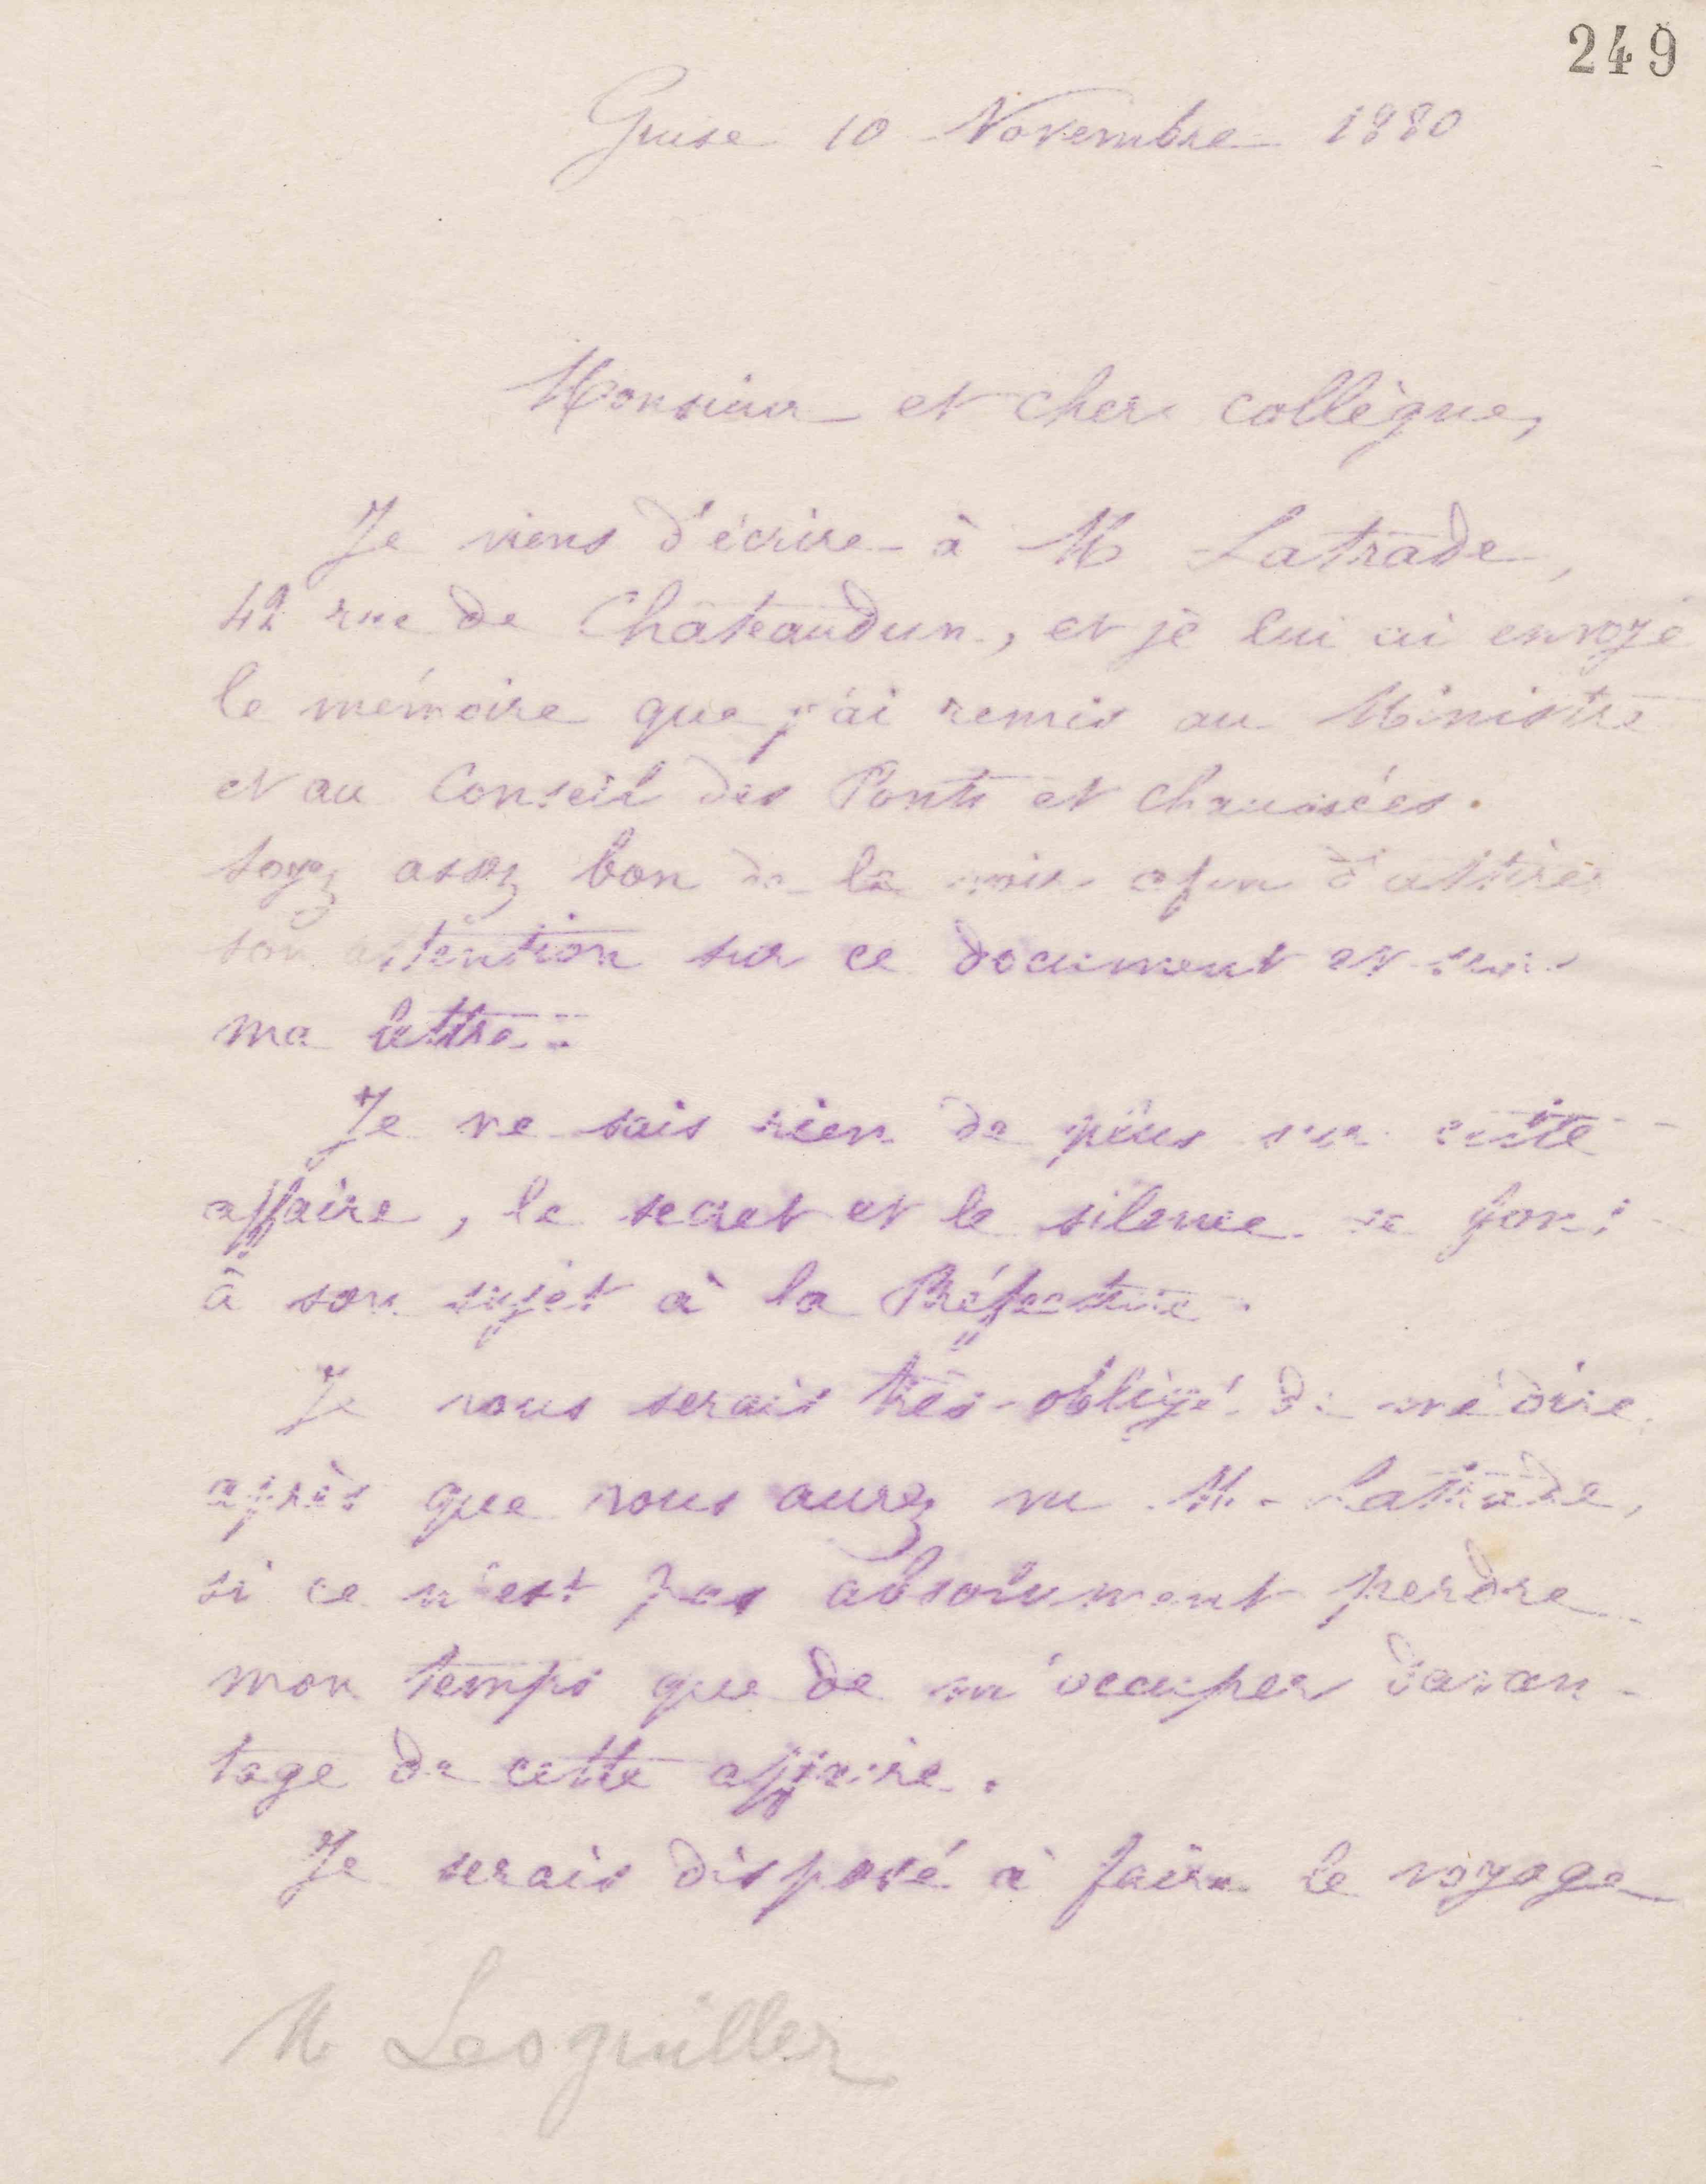 249
Guise 10 Novembre 1880
Monsieur et cher collègue,
Je viens d'écrire à M Latrade,
42 rue de Châteaudun, et je lui ai envoyé
le mémoire que j'ai remis au Ministre
et au Conseil des Ponts et chaussées.
Soyez assez bon de le voir afin d'attirer
son attention sur ce document et sur
ma lettre.
Je ne sais rien de plus sur cette
affaire, le secret et le silence se font
à son sujet à la Préfecture.
Je vous serais très-obligé de me dire
après que vous aurez vu M. Latrade,
si ce n'est pas absolument perdre
mon temps que de m'occuper davan-
tage de cette affaire.
Je serais disposé à faire le voyage
M Lesguiller